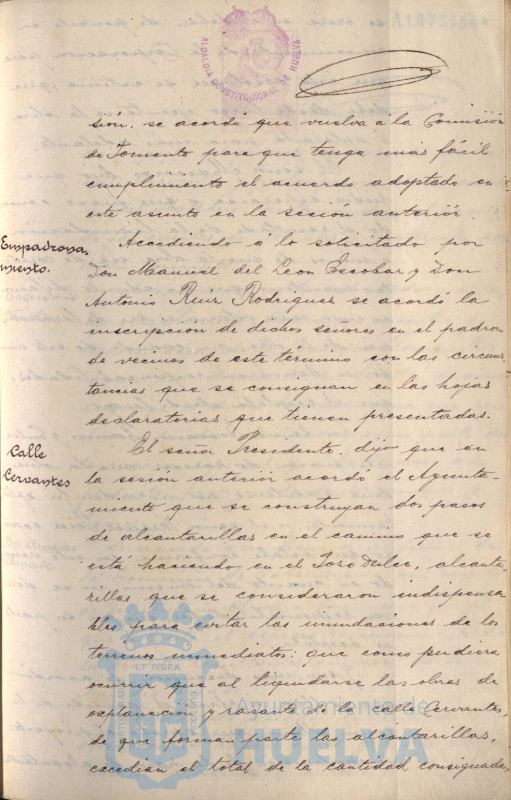 ALCALDÍA CONSTITUCIONAL DE HUELVA
sión, se acordó que vuelva á la Comisión
de Fomento para que tenga más fácil
cumplimiento el acuerdo adoptado en
este asunto en la sesión anterior.
Empadrona
miento.
Accediendo á lo solicitado por
Don Manuel del Leon Escobar y Don
Antonio Ruiz Rodriguez se acordó la
inscripcion de dichos señores en el padron
de vecinos de este término con las circuns
tancias que se consignan en las hojas
declaratorias que tienen presentadas.
Calle
Cervantes
El señor Presidente, dijo que en
la sesión anterior acordó el Ayunta-
miento que se construyan dos pasos
de alcantarillas en el camino que se
está haciendo en el Pozo Dulce, alcanta
rillas que se consideraron indispensa
bles para evitar las inundaciones de los
terrenos inmediatos: que como pudiera
ocurrir que al liquidarse las obras de
explanación y rasante de la calle Cervantes,
de que forman parte las alcantarillas,
excedian el total de la cantidad consignada,
ET TERRÆ
Ayuntamiento de
HUELVA